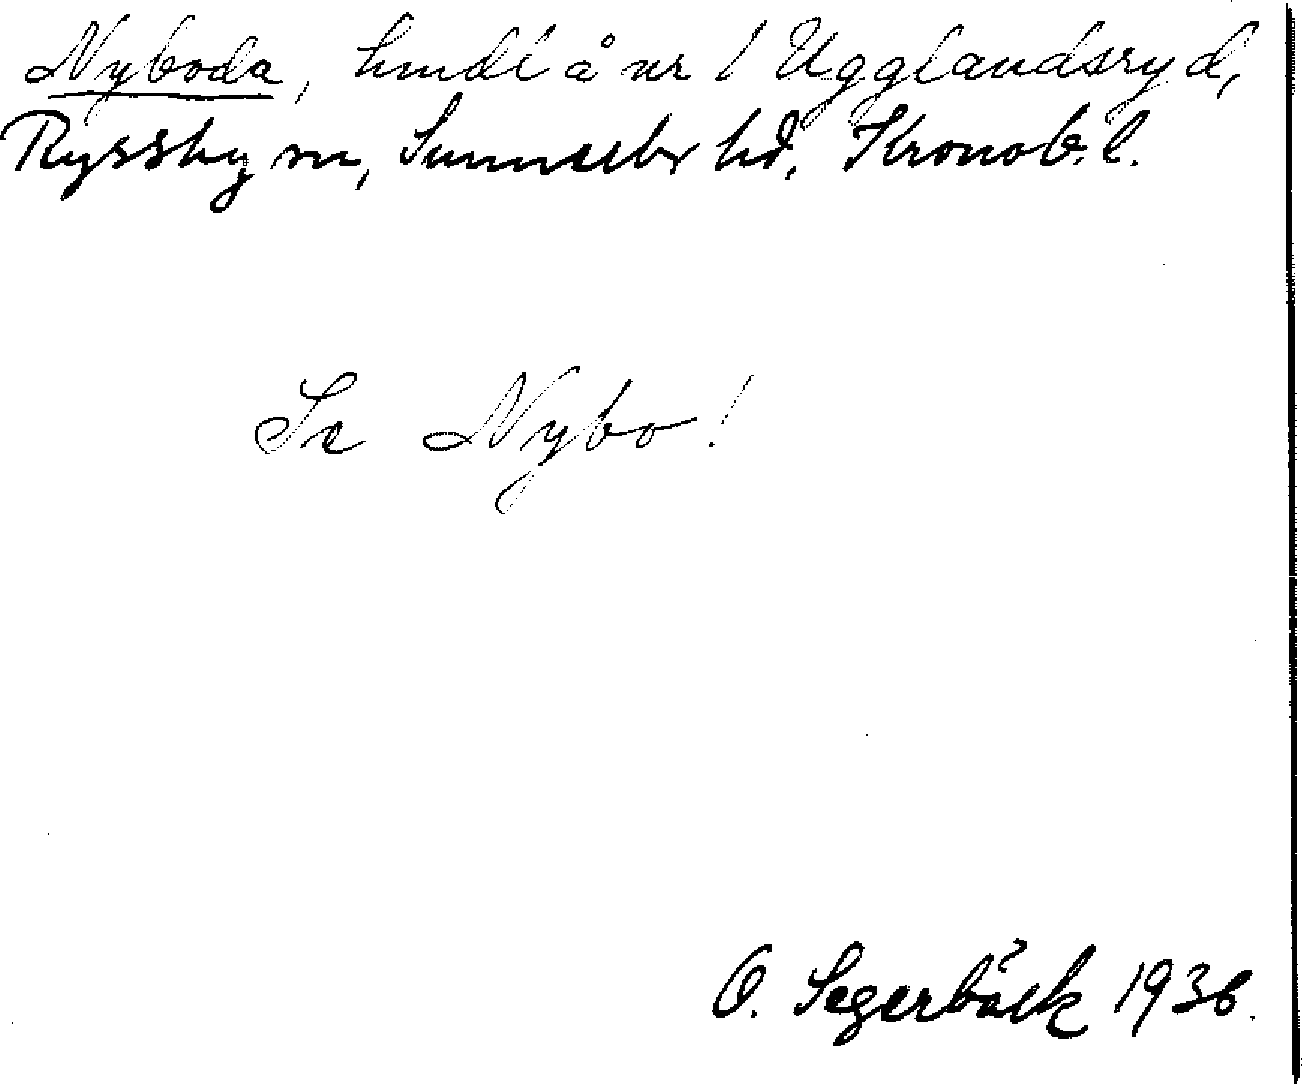 Nyboda, hmdl å nr 1 Ugglandsryd,
Ryssby sn, Sunnerbo hd, Kronob. l.
Se Nybo!
O. Segerbäck 1936.